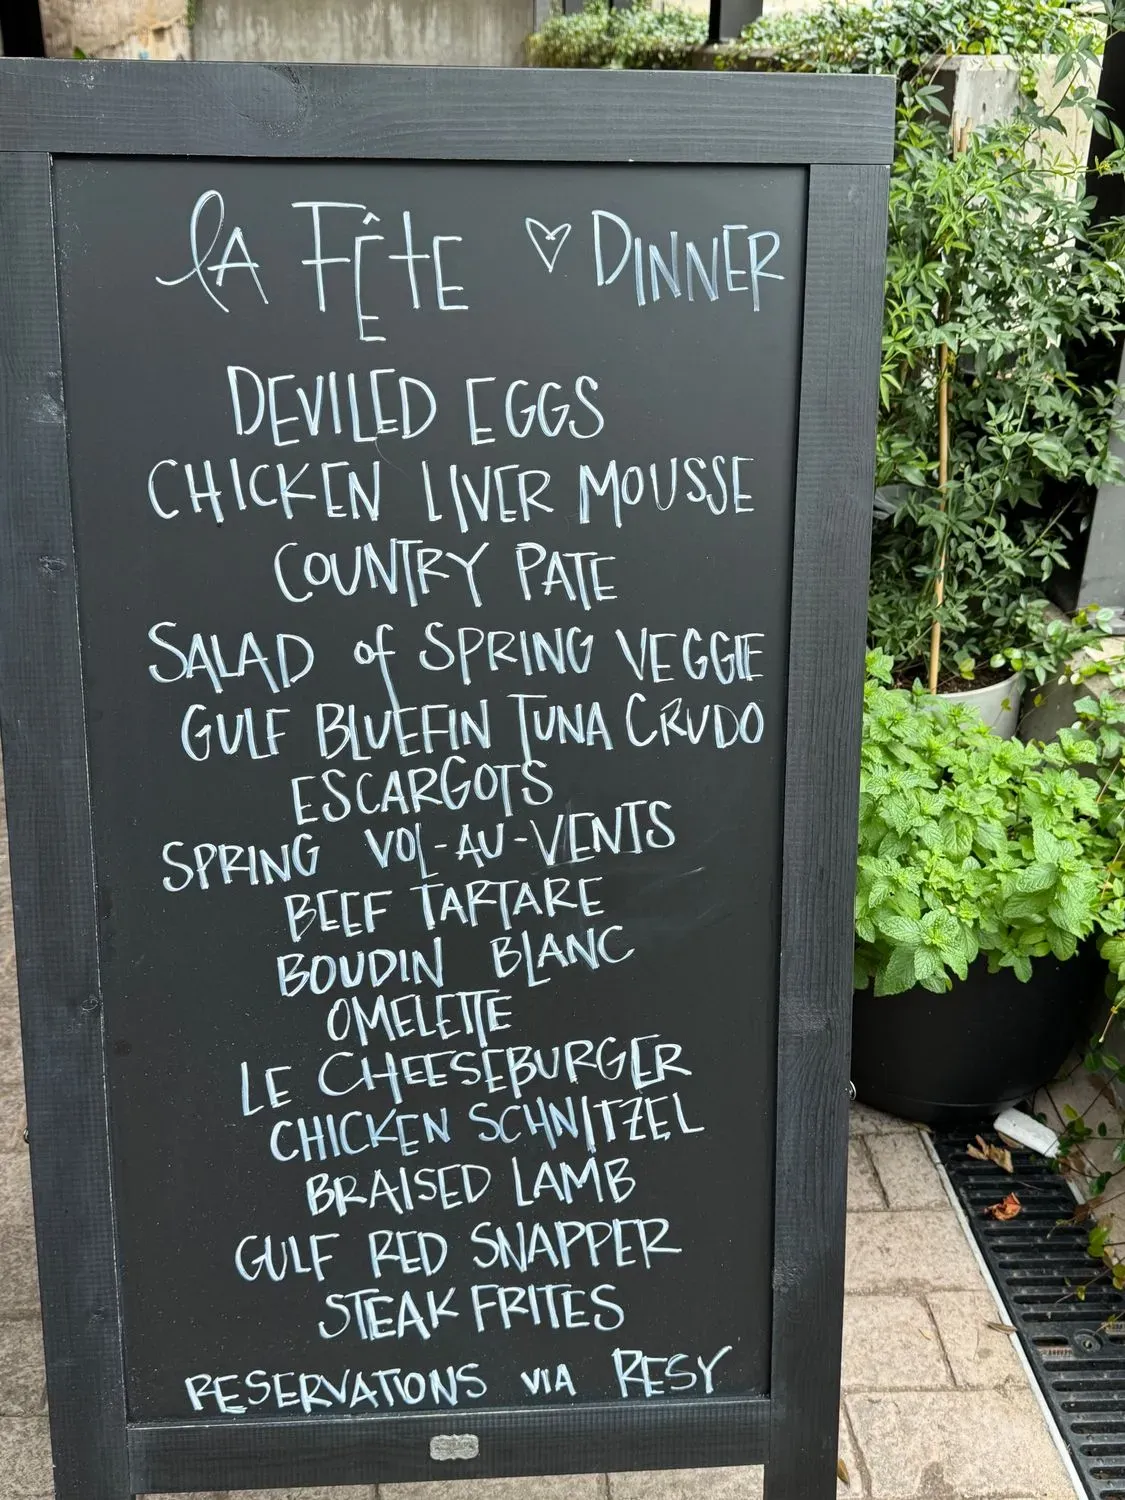 LA FÊTE ♡ DINNER
DEVILED EGGS
CHICKEN LIVER MOUSSE
COUNTRY PATE
SALAD of SPRING VEGGIE
GULF BLUEFIN TUNA CRUDO
ESCARGOTS
SPRING VOL-AU-VENTS
BEEF TARTARE
BOUDIN BLANC
OMELETTE
LE CHEESEBURGER
CHICKEN SCHNITZEL
BRAISED LAMB
GULF RED SNAPPER
STEAK FRITES
RESERVATIONS VIA RESY